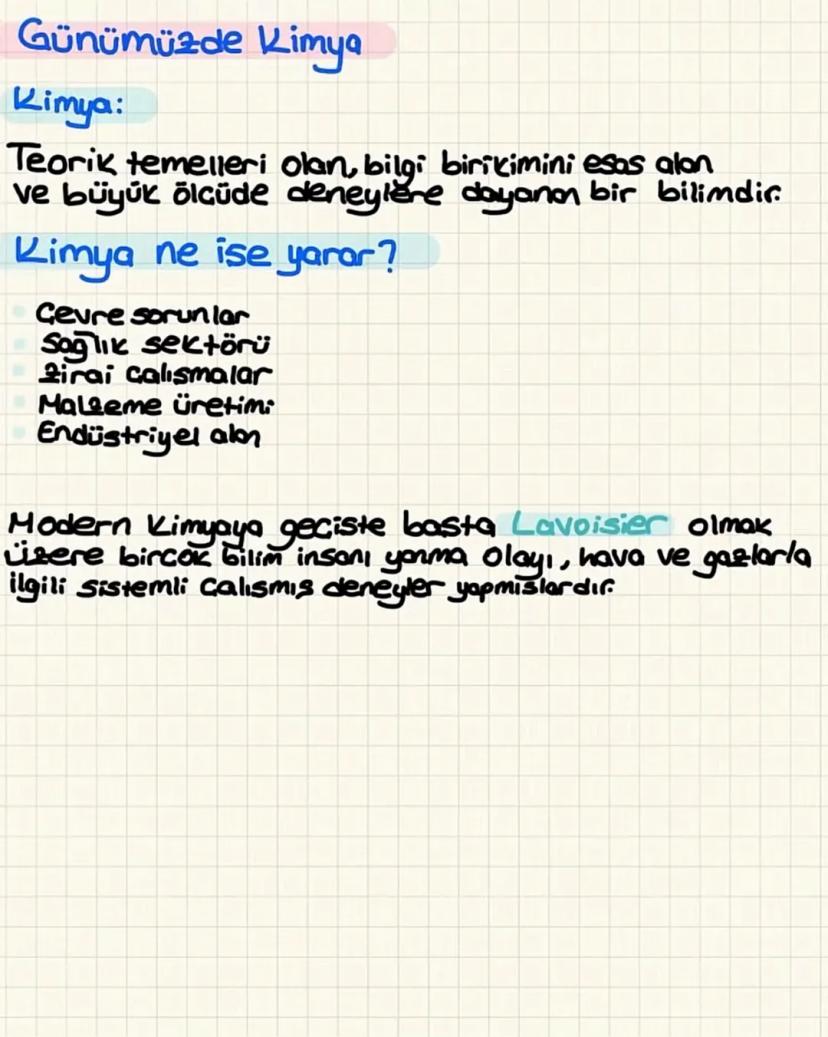 Günümüzde Kimya
Kimya:
Teorik temelleri olan, bilgi birikimini esas alan
ve büyük ölcüde deneylere dayanan bir bilimdir.
Kimya ne ise yarar?
Cevre sorunlar
Sağlık sektörü
Zirai calısmalar
Malzeme üretimi
Endüstriyel alan
Modern Kimyaya geciste basta Lavoisier olmak
üzere bircok bilim insanı yanma olayı, hava ve gazlarla
ilgili sistemli calısmıs deneyler yapmıslardır.